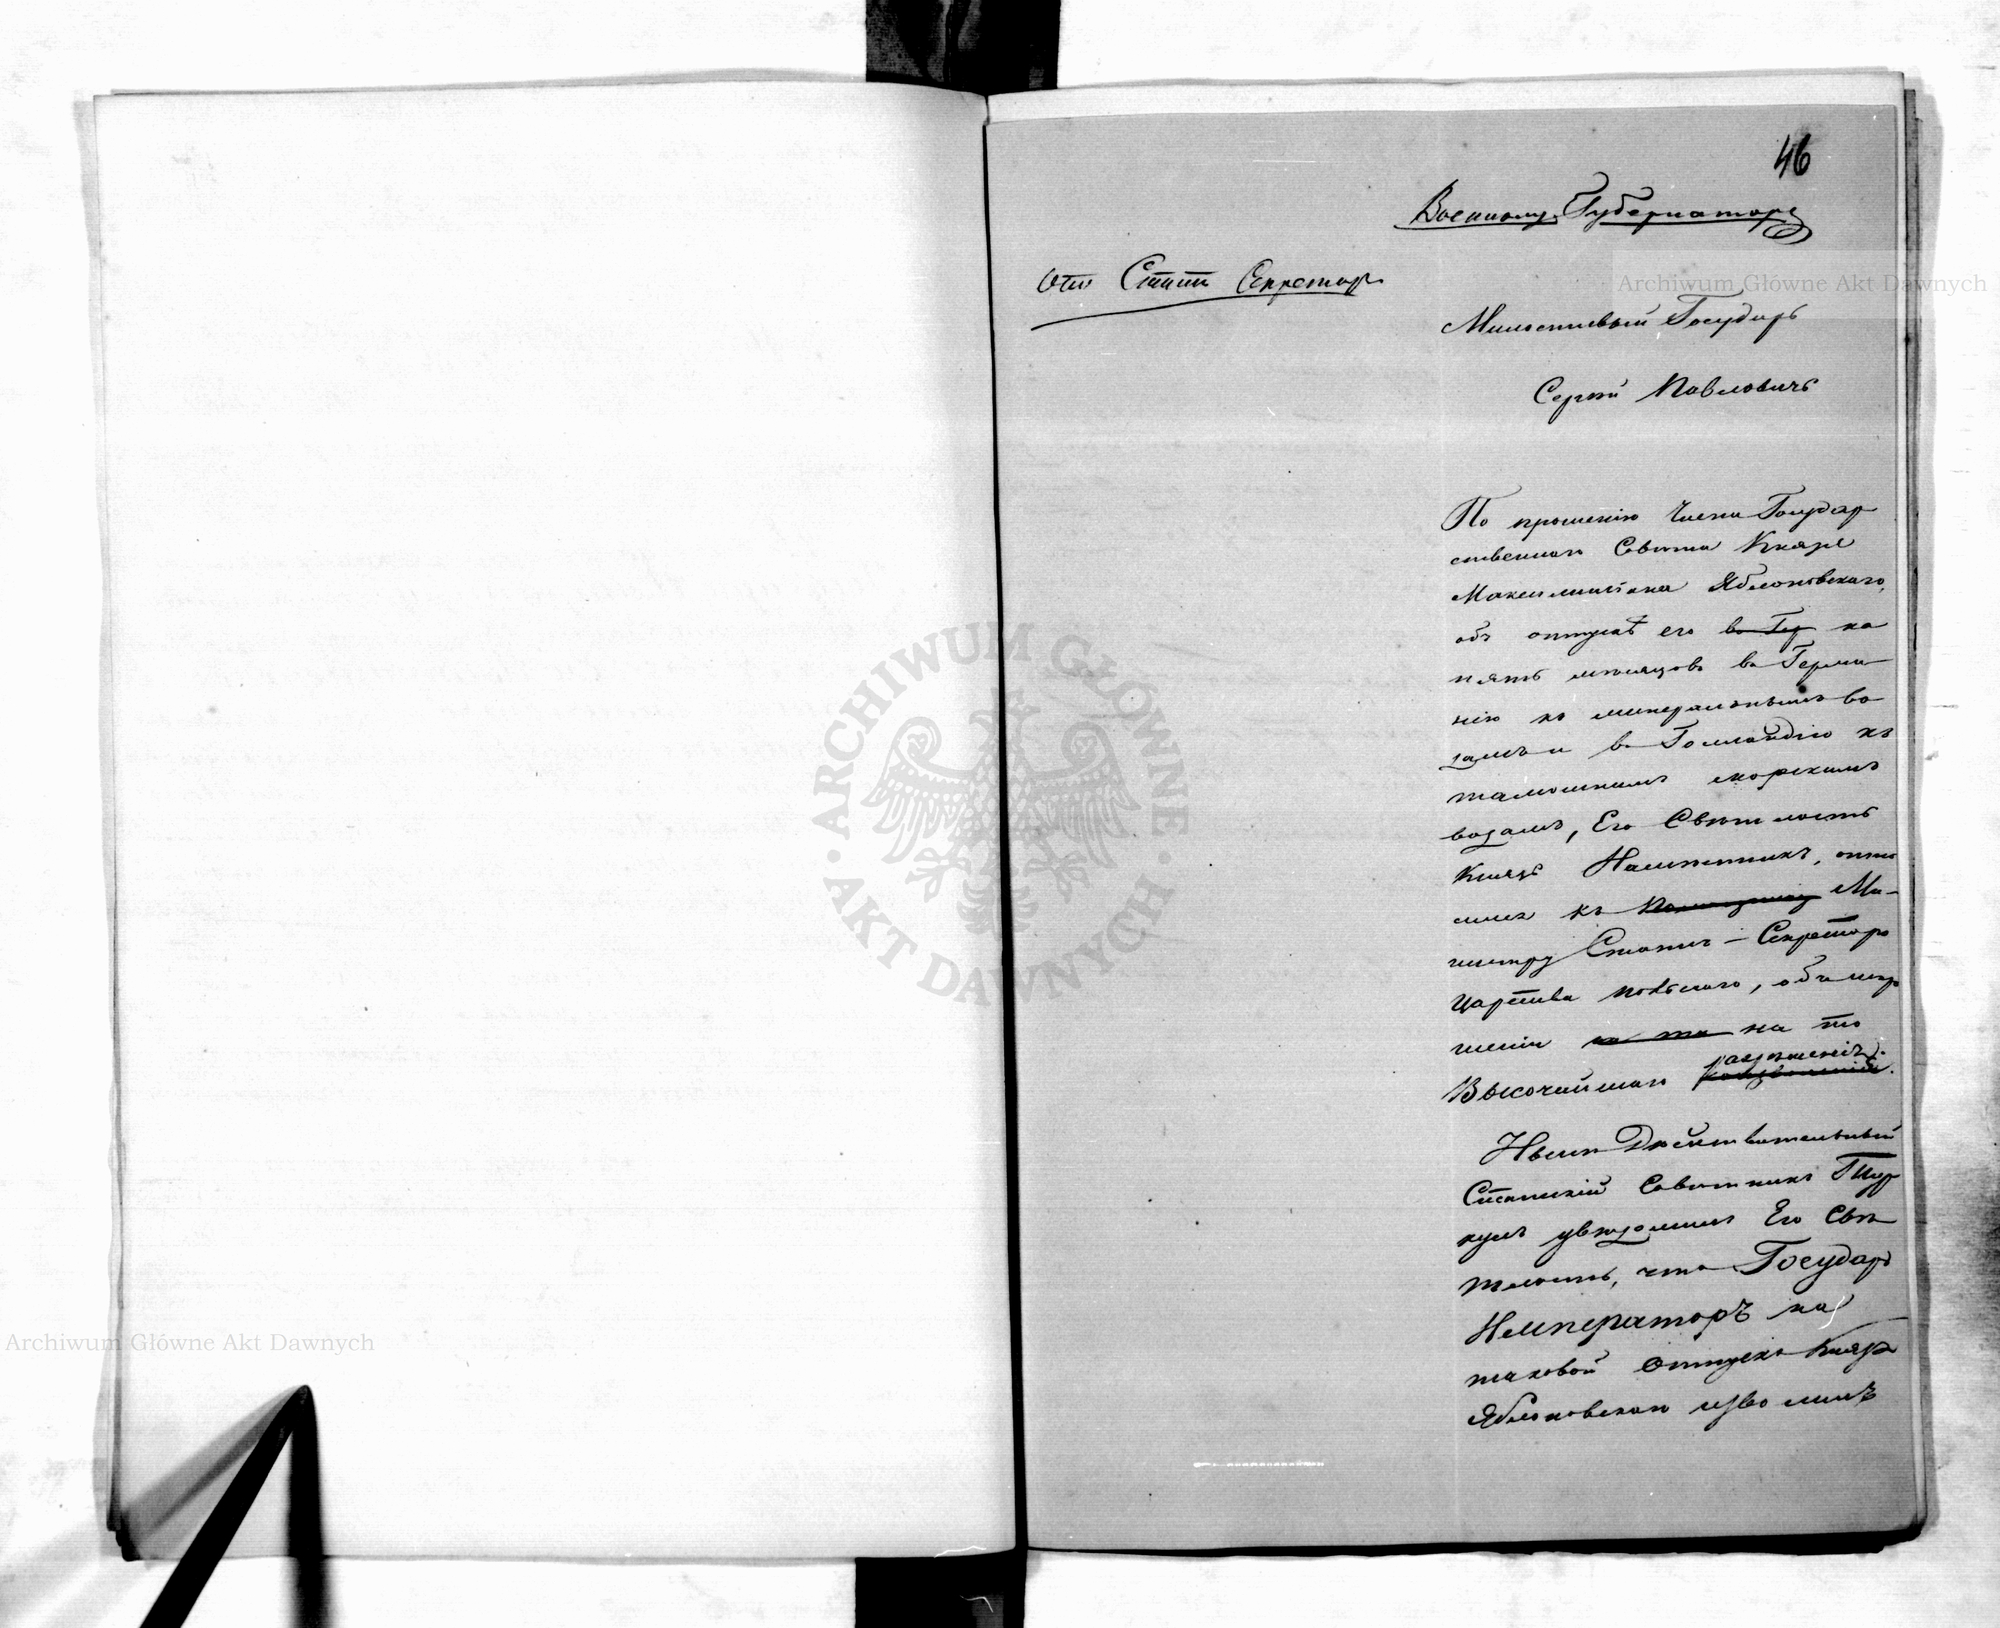 46
Военному Губернатору
Отъ Статсъ Секретаря
Милостивый Государь
Сергѣй Павловичъ
По прошенію Члена Государ
ственнаго Совѣта Князя
Максимиліана Яблоновскаго,
объ отпускѣ его въ Гер на
пять мѣсяцовъ въ Герма
нію къ минеральнымъ во
дамъ и въ Голландію къ
тамошнимъ морскимъ
водамъ, Его Свѣтлость
Князь Намѣстникъ, отно
сился къ Ми-
нистру Статсъ-Секретарю
Царства Польскаго, объ испро
шеніи на то на то
Высочайшаго разрѣшенія.
Нынѣ Дѣйствительный
Статскій Совѣтникъ Тур
кулъ увѣдомилъ Его Свѣ
тлость, что Государь
Императоръ на
таковой отпускъ Князя
Яблоновскаго изволилъ
Archiwum Główne Akt Dawnych
Archiwum Główne Akt Dawnych
ARCHIWUM GŁÓWNE
AKT DAWNYCH